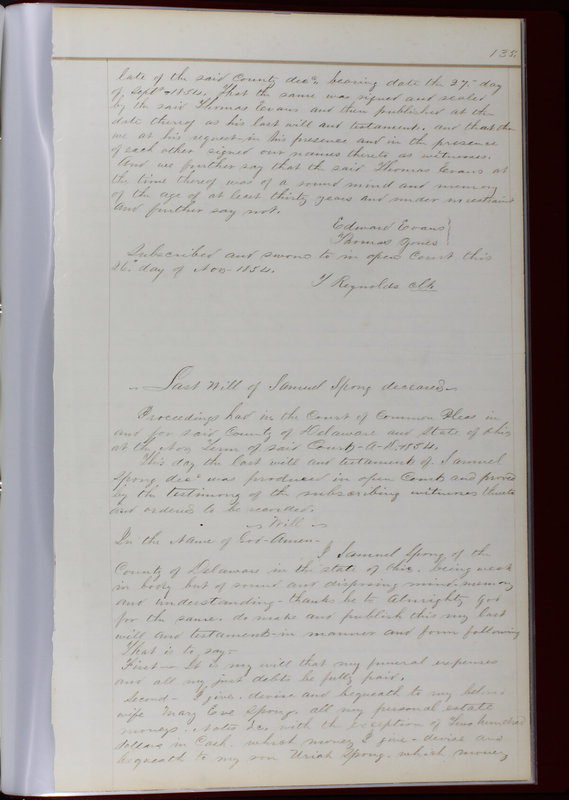 135.
late of the said County decd, bearing date the 27th day
of Septr 1854. That the same was signed and sealed
by the said Thomas Evans and then published at the
date thereof as his last will and testament. and that
we at his request in his presence and in the presence
of each other signed our names thereto as witnesses.
And we further say that the said Thomas Evans at
the time thereof was of a sound mind and memory
of the age of at least thirty years and under no restraint
And further say not.
Edward Evans
Thomas Jones
Subscribed and sworn to in open Court this
26th day of Nov 1854.
T Reynolds clk
Last Will of Samuel Spong deceased
Proceedings had in the Court of Common Pleas in
and for said County of Delaware and State of Ohio
at the Nov Term of said Court - A.D. 1854.
This day the last will and testament of Samuel
Spong decd was produced in open Court and proved
by the testimony of the subscribing witnesses thereto
and ordered to be recorded.
Will
In the Name of God Amen -
I Samuel Spong of the
County of Delaware in the state of Ohio. being weak
in body but of sound and disposing mind memory
and understanding - thanks be to Almighty God
for the same. do make and publish this my last
will and testament in manner and form following
That is to say -
First - It is my will that my funeral expenses
and all my just debts be fully paid.
Second - I give, devise and bequeath to my
wife Mary Eve Spong, all my personal estate
moneys. Notes &c, with the exception of Two hundred
dollars in Cash. which money I give - devise and
bequeath to my son Uriah Spong. which money